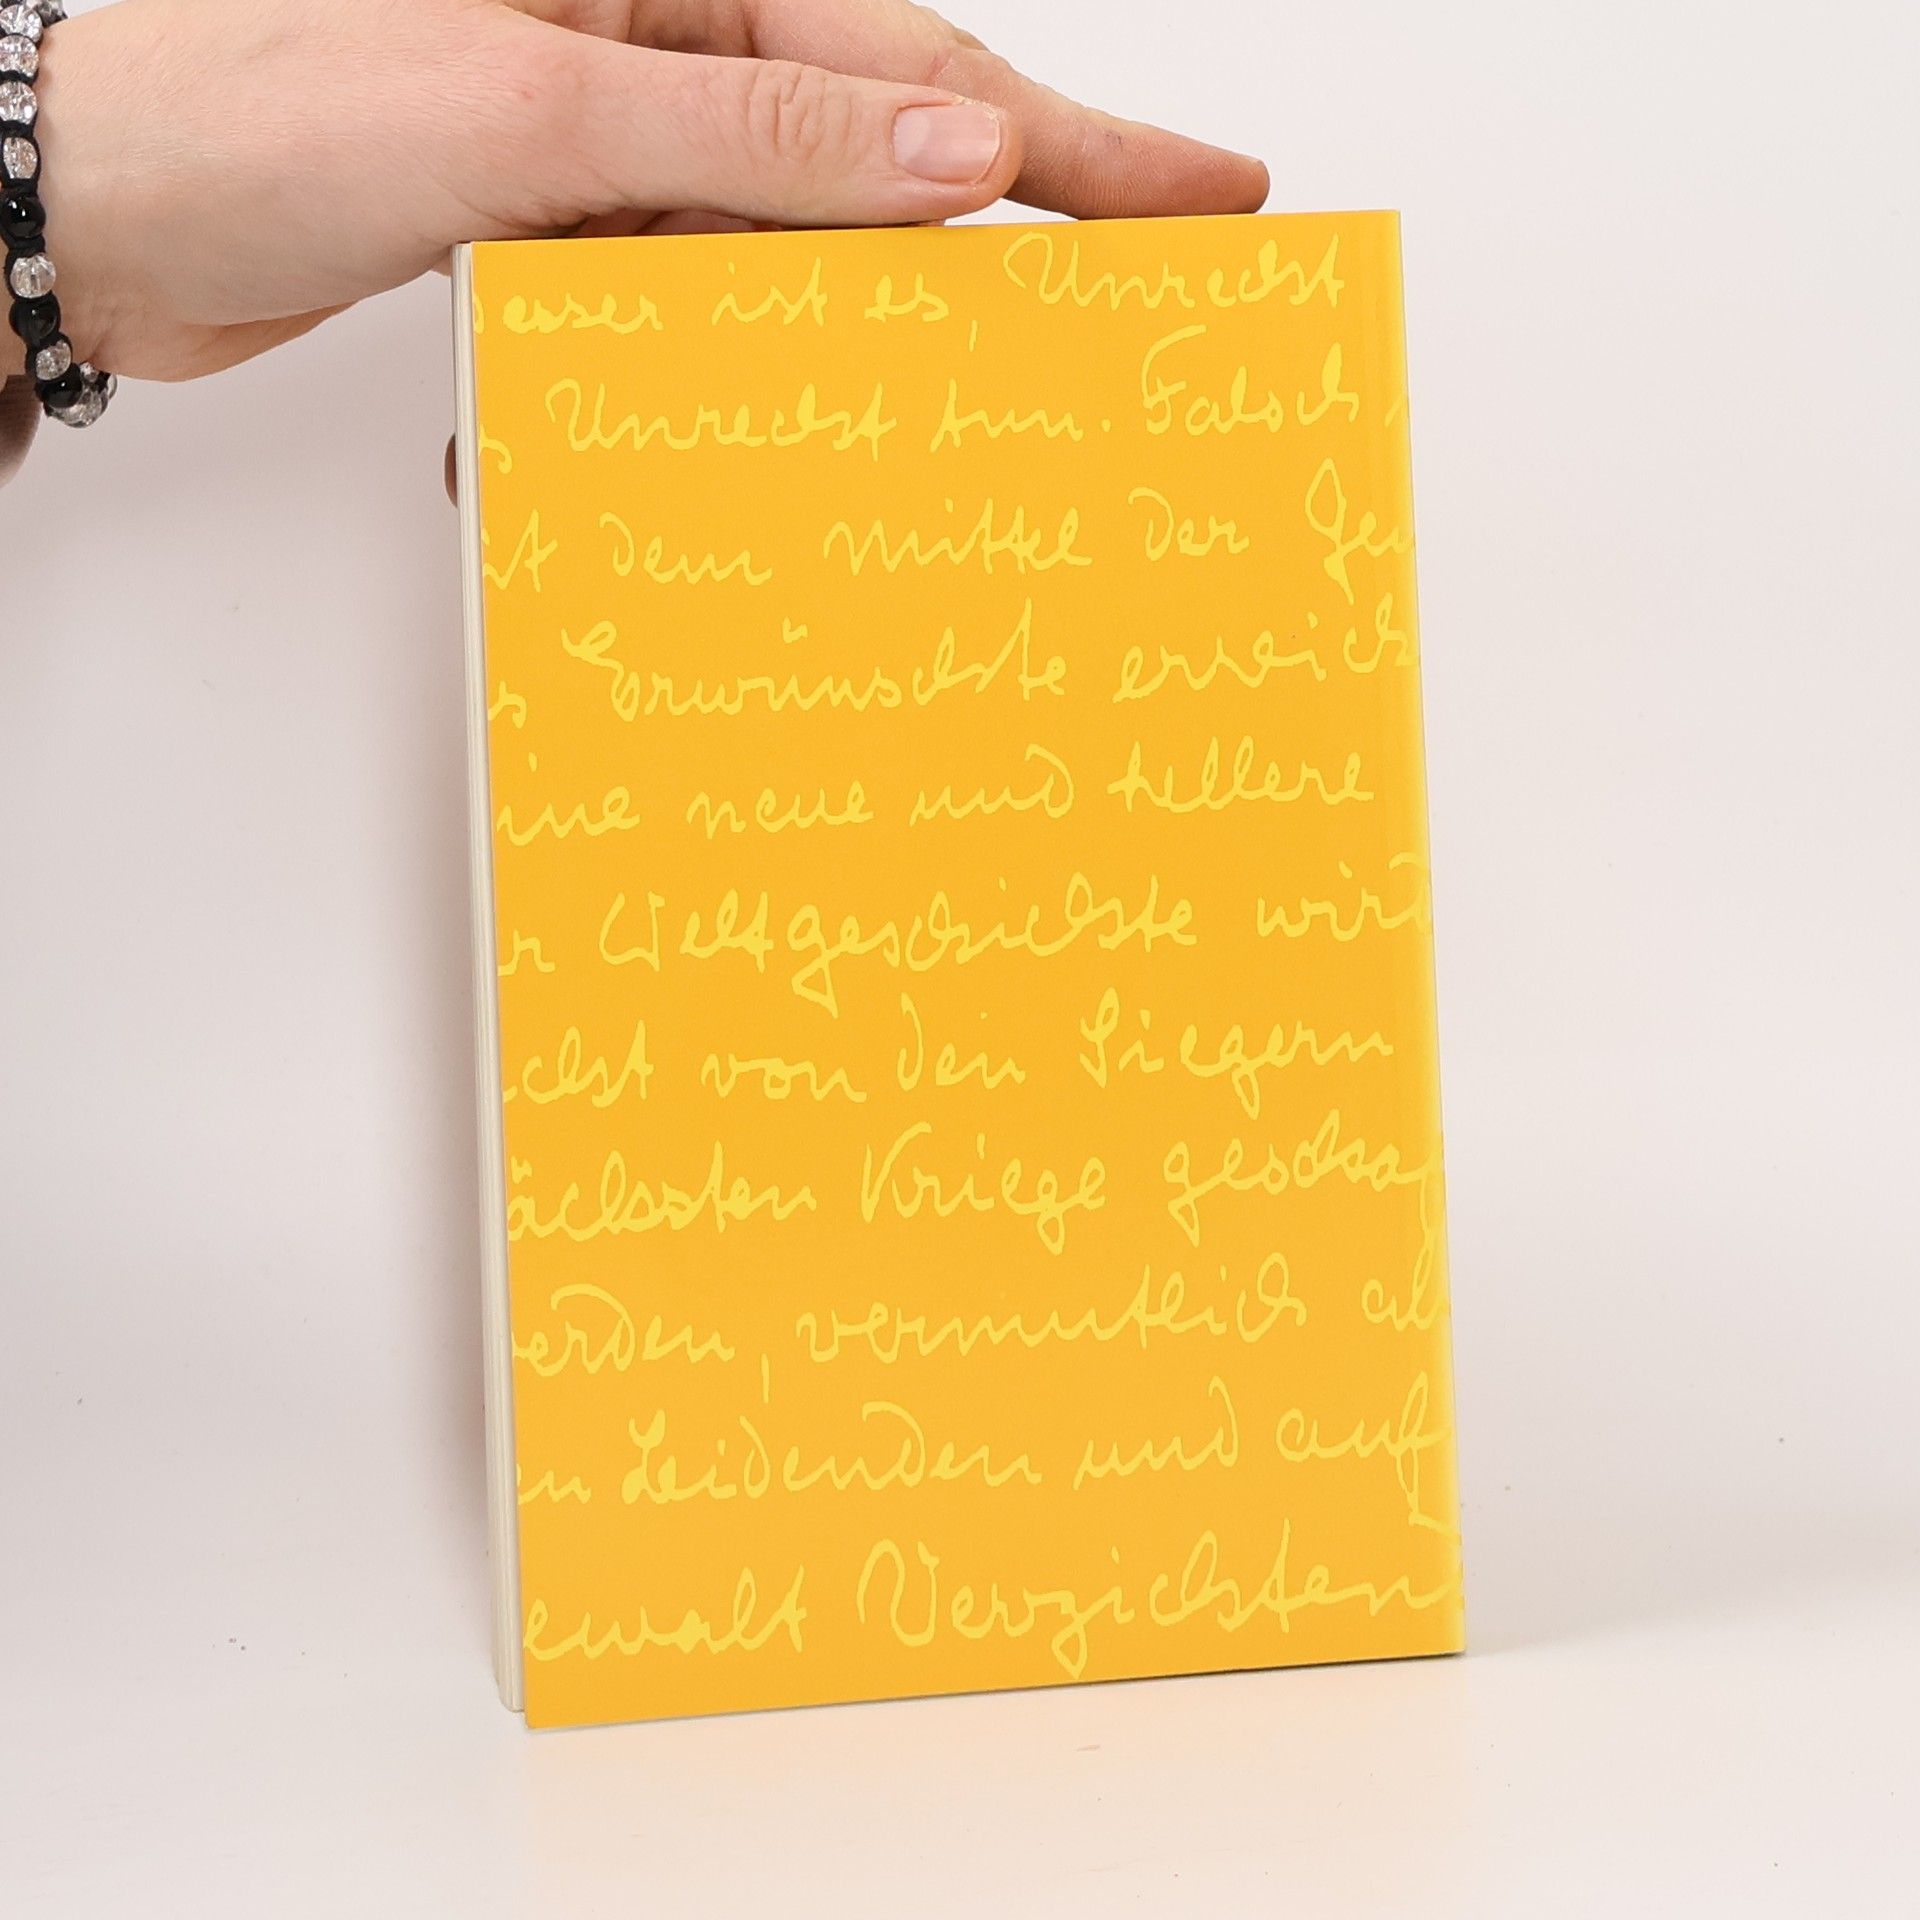 esser ist es, Unrecht
s Unrecht tun. Falsch
it dem Mittel der Gew
s Erwünschte erreich
ine neue und hellere
r Weltgeschichte wird
icht von den Siegern
ächsten Kriege geschla
erden, vermutlich ab
en Leidenden und auf
ewalt Verzichten